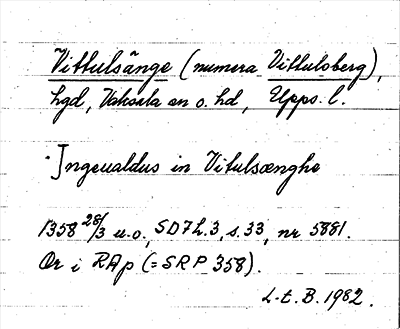 Vittulsänge (numera Vittulsberg),
hgd, Vaksala sn o. hd, Upps. l.
"Ingeualdus in Vitulsænghe
1358 28/3 u.o., SD 7 h.3, s.33, nr 5881.
Or i RAp (= SRP 358).
L-t. B. 1982.